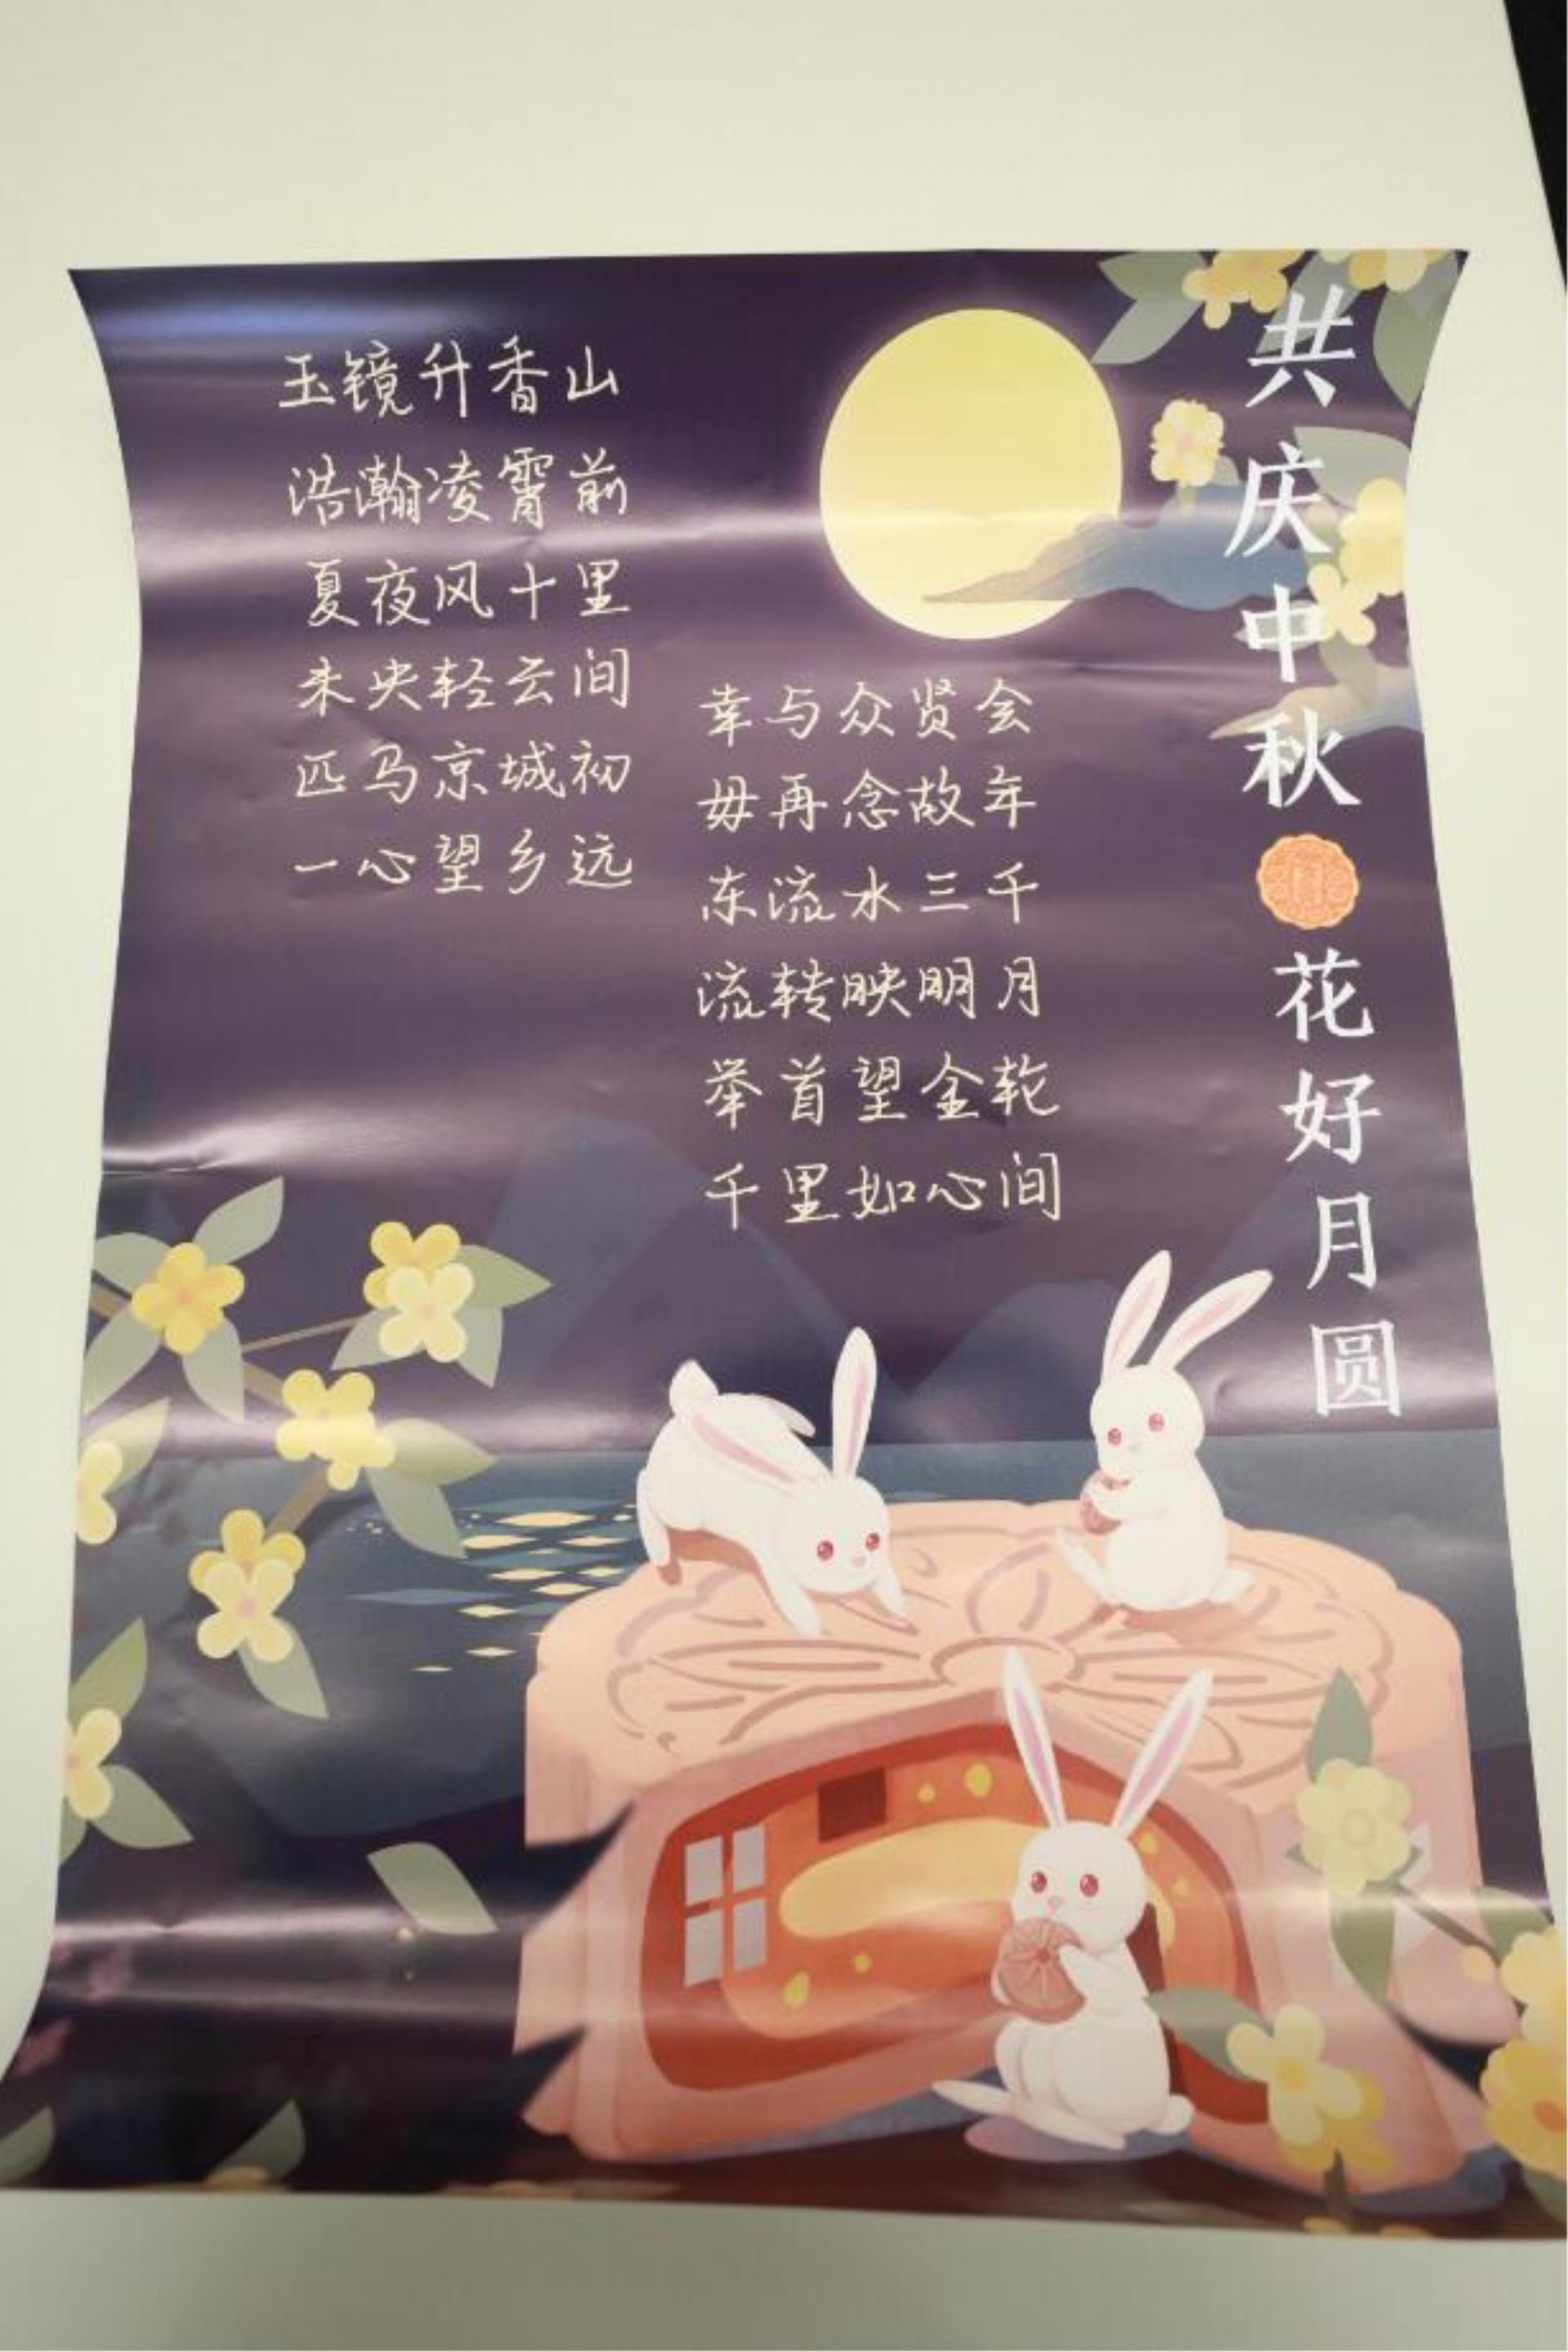 共庆中秋
花好月圆
玉镜升香山
浩瀚凌霄前
夏夜风十里
未央轻云间
匹马京城初
一心望乡远
幸与众贤会
毋再念故年
东流水三千
流转映明月
举首望金轮
千里如心间